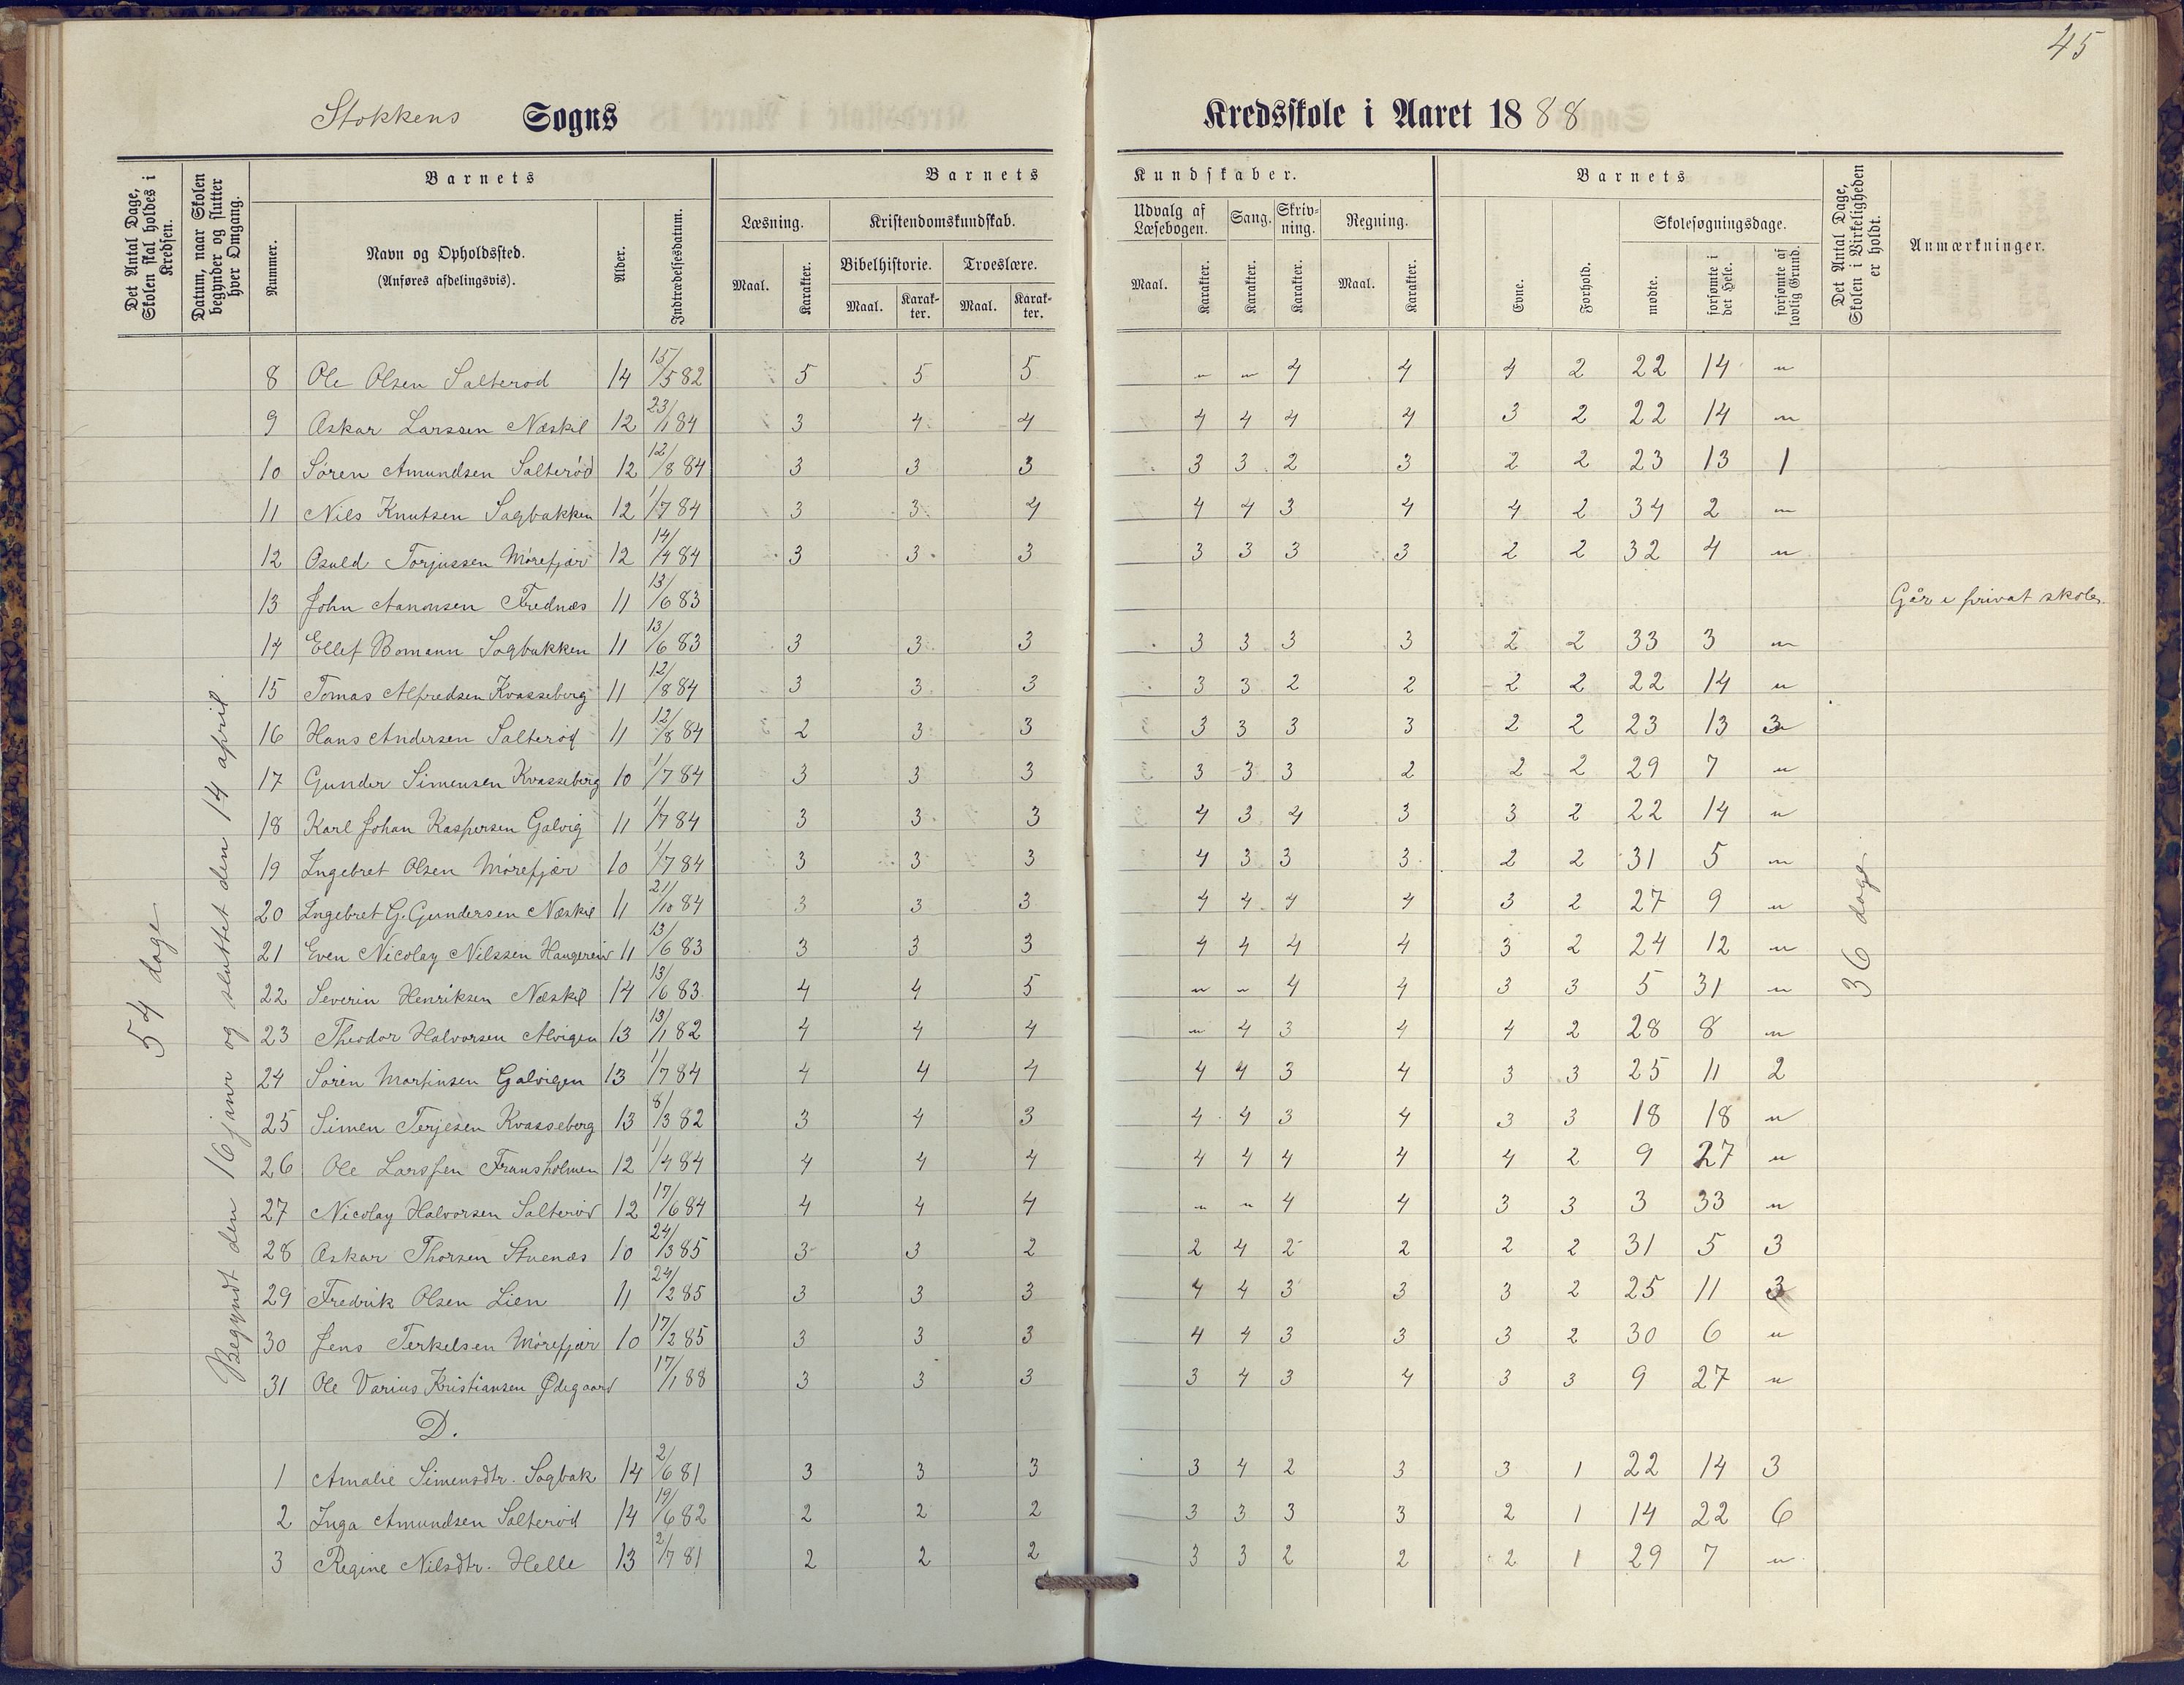 45
Stokkens Sogns Kredsskole i Aaret 1888
Det Antal Dage, Skolen skal holdes i Kredsen.
Datum, naar Skolen begynder og slutter hver Omgang.
Barnets
Nummer.
Navn og Opholdssted.
(Anføres afdelingsvis).
Alder.
Indtrædelsesdatum.
Barnets Kundskaber.
Læsning.
Maal.
Karakter.
Kristendomskundskab.
Bibelhistorie.
Maal.
Karakter.
Troeslære.
Maal.
Karakter.
Udvalg af Læsebogen.
Maal.
Karakter.
Sang.
Karakter.
Skrivning.
Karakter.
Regning.
Maal.
Karakter.
Barnets
Evne.
Forhold.
Skolesøgningsdage.
mødte.
forsømte i det Hele.
forsømte af lovlig Grund.
Det Antal Dage, Skolen i Virkeligheden er holdt.
Anmærkninger.
54 dage
Begyndt den 16 januar og sluttet den 14 april.
36 dage
8 Ole Olsen Salterød 14 15/5 82 5 5 5 " " 4 4 4 2 22 14 "
9 Askar Larssen Næskil 12 23/1 84 3 4 4 4 4 4 4 3 2 22 14 "
10 Søren Amundsen Salterød 12 12/8 84 3 3 3 3 3 2 3 2 2 23 13 1
11 Nils Knutsen Sagbakken 12 1/7 84 3 3 4 4 4 3 4 4 2 34 2 "
12 Osuld Torjussen Mórefjær 12 14/4 84 3 3 3 3 3 3 3 2 2 32 4 "
13 John Aanonsen Frednæs 11 13/6 83 Går i privat skole.
14 Ellef Bomann Sagbakken 11 13/6 83 3 3 3 3 3 3 3 2 2 33 3 "
15 Tomas Alfredsen Kvasseberg 11 12/8 84 3 3 3 3 3 2 2 2 2 22 14 "
16 Hans Andersen Salterød 11 12/8 84 2 3 3 3 3 3 3 2 2 23 13 3
17 Gunder Simensen Kvasseberg 10 1/7 84 3 3 3 3 3 3 2 2 2 29 7 "
18 Karl Johan Kaspersen Galvig 11 1/7 84 3 3 3 4 3 4 3 3 2 22 14 "
19 Ingebret Olsen Mórefjær 10 1/7 84 3 3 3 4 3 3 3 2 2 31 5 "
20 Ingebret G. Gundersen Næskil 11 21/10 84 3 3 3 4 4 4 4 3 2 27 9 "
21 Even Nicolay Nilssen Haugerein 11 13/6 83 3 3 3 4 4 4 4 3 2 24 12 "
22 Severin Henriksen Næskil 14 13/6 83 4 4 5 " " 4 4 3 3 5 31 "
23 Theodor Halvorsen Alvigen 13 13/1 82 4 4 4 " 4 3 4 4 2 28 8 "
24 Søren Martinsen Galvigen 13 1/7 84 4 4 4 4 4 3 4 3 3 25 11 2
25 Simen Terjesen Kvasseberg 13 8/3 82 3 4 3 4 4 3 4 3 3 18 18 "
26 Ole Larssen Fransholmen 12 1/4 84 4 4 4 4 4 4 4 4 2 9 27 "
27 Nicolay Halvorsen Salterød 12 17/6 84 4 4 4 " " 4 4 3 3 3 33 "
28 Askar Thorsen Stuenæs 10 24/3 85 3 3 2 2 4 2 2 2 2 31 5 3
29 Fredrik Olsen Lien 11 24/2 85 3 3 3 4 4 3 3 3 2 25 11 3
30 Jens Terkelsen Mórefjær 10 17/2 85 3 3 3 4 4 3 3 3 2 30 6 "
31 Ole Varius Kristiansen Ødegaard 17/1 88 3 3 3 3 4 3 4 3 3 9 27 "
D.
1 Amalie Simensdtr. Sagbak 14 2/6 81 3 3 3 3 4 2 3 3 1 22 14 3
2 Inga Amundsen Salterød 14 19/6 82 2 2 2 3 3 3 3 2 1 14 22 6
3 Regine Nilsdtr. Helle 13 2/7 81 2 2 2 3 3 2 2 2 1 29 7 "